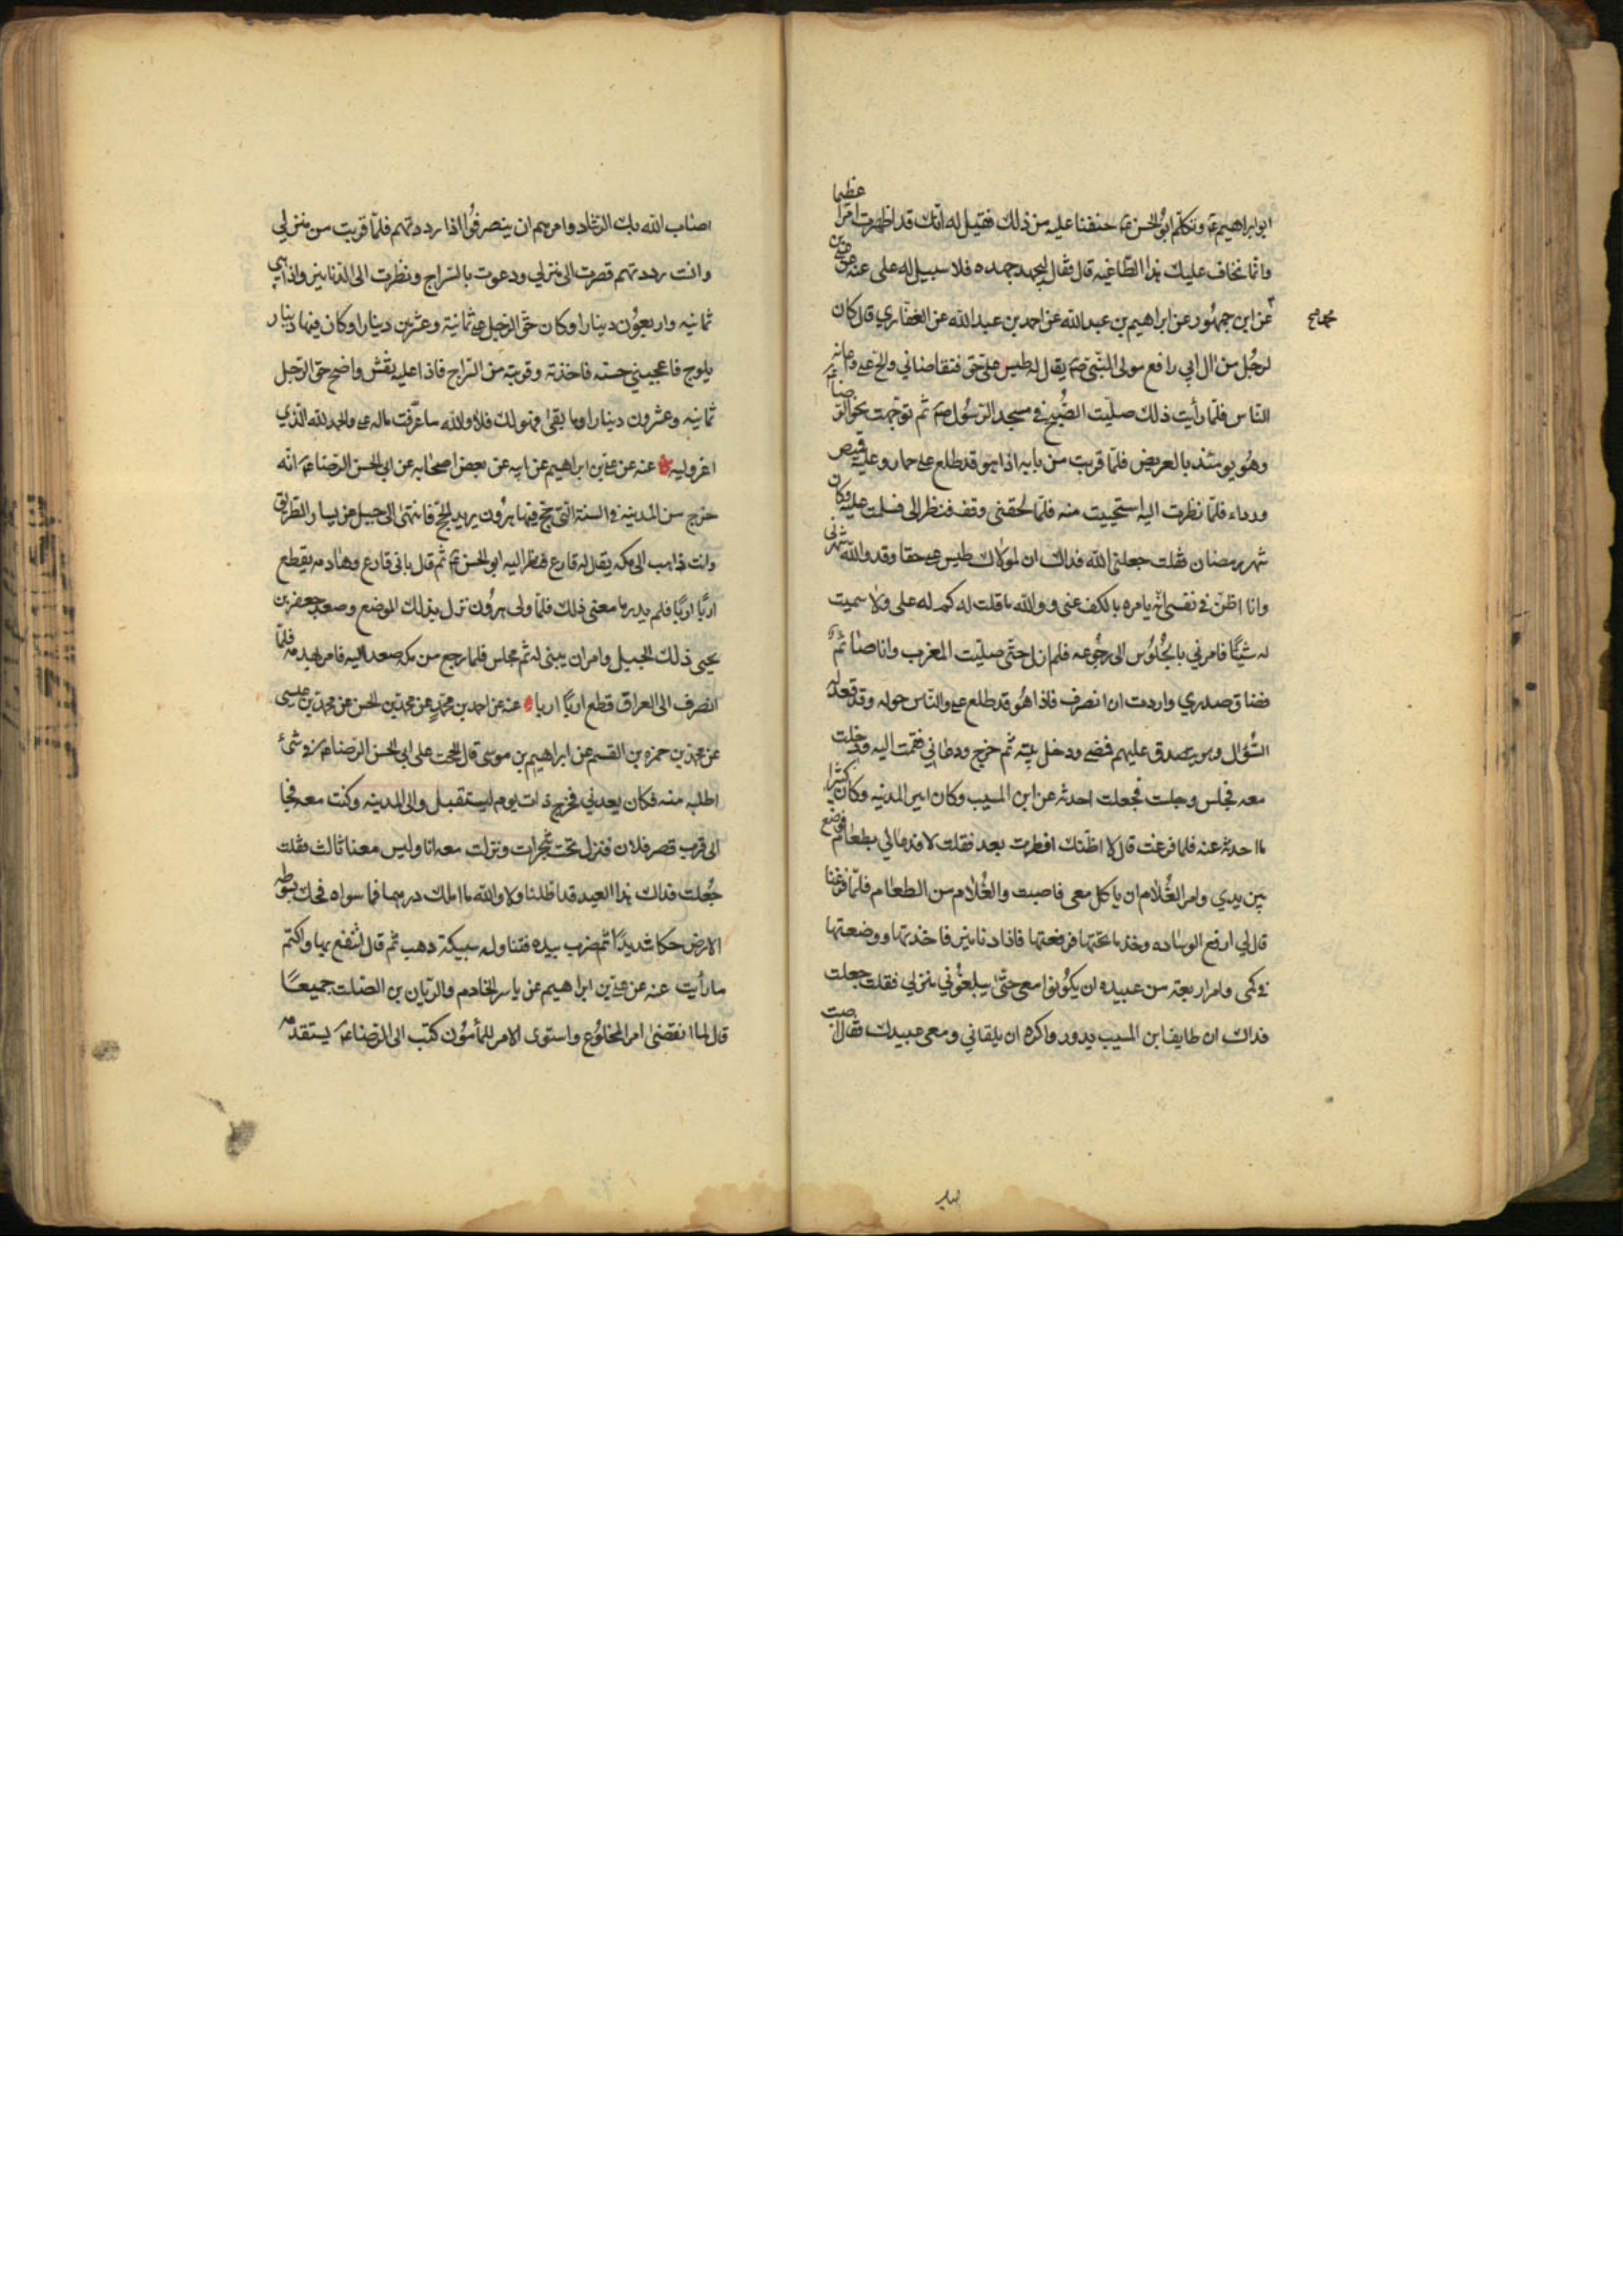 ابو ابراهيم ع وتكلم ابو الحسن ع خفنا عليه من ذلك فقيل له انك قد اظهرت امرا عظيما
وانا نخاف عليك هذا الطاغيه قال فقال ليجهد جهده فلا سبيل له على عنه عن علي بن
محمد صح
عن ابن جمهور عن ابراهيم بن عبد الله عن احمد بن عبد الله عن الغفاري قال كان
لرجل من ال ابي رافع مولى النبي صم يقال له طيس على حق فتقاضاني والح علي واعانه
الناس فلما رأيت ذلك صليت الصبح في مسجد الرسول صم ثم توجهت نحو الرضا ع
وهو يومئذ بالعريض فلما قربت من بابه اذا هو قد طلع على حمار وعليه قميص
ورداء فلما نظرت اليه استحييت منه فلما لحقني وقف فنظر الى فسلمت عليه وكان
شهر رمضان فقلت جعلني الله فداك ان لمولاك طيس علي حقا وقد والله شهرني
وانا اظن في نفسي انه يامره بالكف عني ووالله ما قلت له كم له على ولا سميت
له شيئا فامرني بالجلوس الى رجوعه فلم ازل حتى صليت المغرب وانا صائم
فضاق صدري واردت ان انصرف فاذا هو قد طلع علي والناس حوله وقد قعد له
السؤال وهو يتصدق عليهم فمضى ودخل بيته ثم خرج ودعاني فقمت اليه ودخلت
معه فجلس وجلست فجعلت احدثه عن ابن المسيب وكان امير المدنيه وكان كثيرا
ما احدثه عنه فلما فرغت قال لا اظنك افطرت بعد فقلت لا فدعا لي بطعام فوضع
بين يدي وامر الغلام ان ياكل معي فاصبت والغلام من الطعام فلما فرغنا
قال لي ارفع الوساده وخذ ما تحتها فرفعتها فاذا دنانير فاخذتها ووضعتها
في كمي وامر اربعة من عبيده ان يكونوا معي حتى يبلغوني منزلي فقلت جعلت
فداك ان طايف ابن المسيب يدور واكره ان يلقاني ومعي عبيدك فقال اصبت
اصاب الله بك الرشاد وامرهم ان ينصرفوا اذا رددتهم فلما قربت من منزلي
وانت رددتهم فصرت الى منزلي ودعوت بالسراج ونظرت الى الدنانير واذا هي
ثمانيه واربعون دينارا وكان حق الرجل علي ثمانية وعشرين دينارا وكان فيها دينار
يلوح فاعجبني حسنه فاخذته وقربته من السراج فاذا عليه نقش واضح حق الرجل
ثمانيه وعشرون دينارا وما بقى فهو لك فلا والله ما عرفت ماله علي والحمد لله الذي
اعز وليه عنه عن علي بن ابراهيم عن ابيه عن بعض اصحابه عن ابي الحسن الرضا ع انه
خرج من المدينه في السنة التي حج فيها هرون يريد الحج فانتهى الى جبل عن يسار الطريق
وانت ذاهب الى مكه يقال له قارع فنظر اليه ابو الحسن ع ثم قال باني قارع وهادمه يقطع
اربا اربا فلم يدر ما معنى ذلك فلما ولى هرون نزل بذلك الموضع وصعد جعفر بن
يحيى ذلك الجبل وامر ان يبنى له ثم مجلس فلما رجع من مكه صعد اليه فامر بهدمه فلما
انصرف الى العراق قطع اربا اربا عنه عن احمد بن محمد عن محمد بن الحسن عن محمد بن عيسى
عن محمد بن حمزه بن القسم عن ابراهيم بن موسى قال الححت على ابي الحسن الرضا ع في شئ
اطلبه منه فكان يعدني فخرج ذات يوم ليستقبل والي المدينه وكنت معه فجا
الى قرب قصر فلان فنزل تحت شجرات ونزلت معه انا وليس معنا ثالث فقلت
جعلت فداك هذا العيد قد اظلنا ولا والله ما املك درهما فما سواه فحك بسوطه
الارض حكا شديدا ثم ضرب بيده فتناول سبيكة ذهب ثم قال انتفع بها واكتم
ما رأيت عنه عن علي بن ابراهيم عن ياسر الخادم والريان بن الصلت جميعا
قال لما انقضى امر المخلوع واستوى الامر للمأمون كتب الى الرضا ع يستقدمه